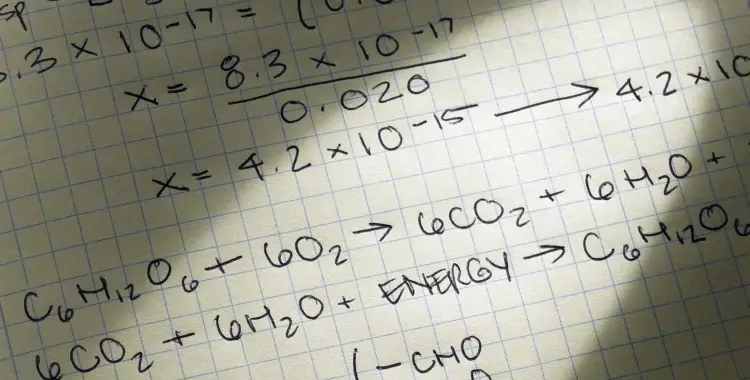 sp
.3 × 10⁻¹⁷ = (0.
x = 8.3 × 10⁻¹⁷
0.020
x = 4.2 × 10⁻¹⁵ → 4.2 × 10
C₆H₁₂O₆ + 6O₂ → 6CO₂ + 6H₂O +
6CO₂ + 6H₂O + ENERGY → C₆H₁₂O₆
(-CHO